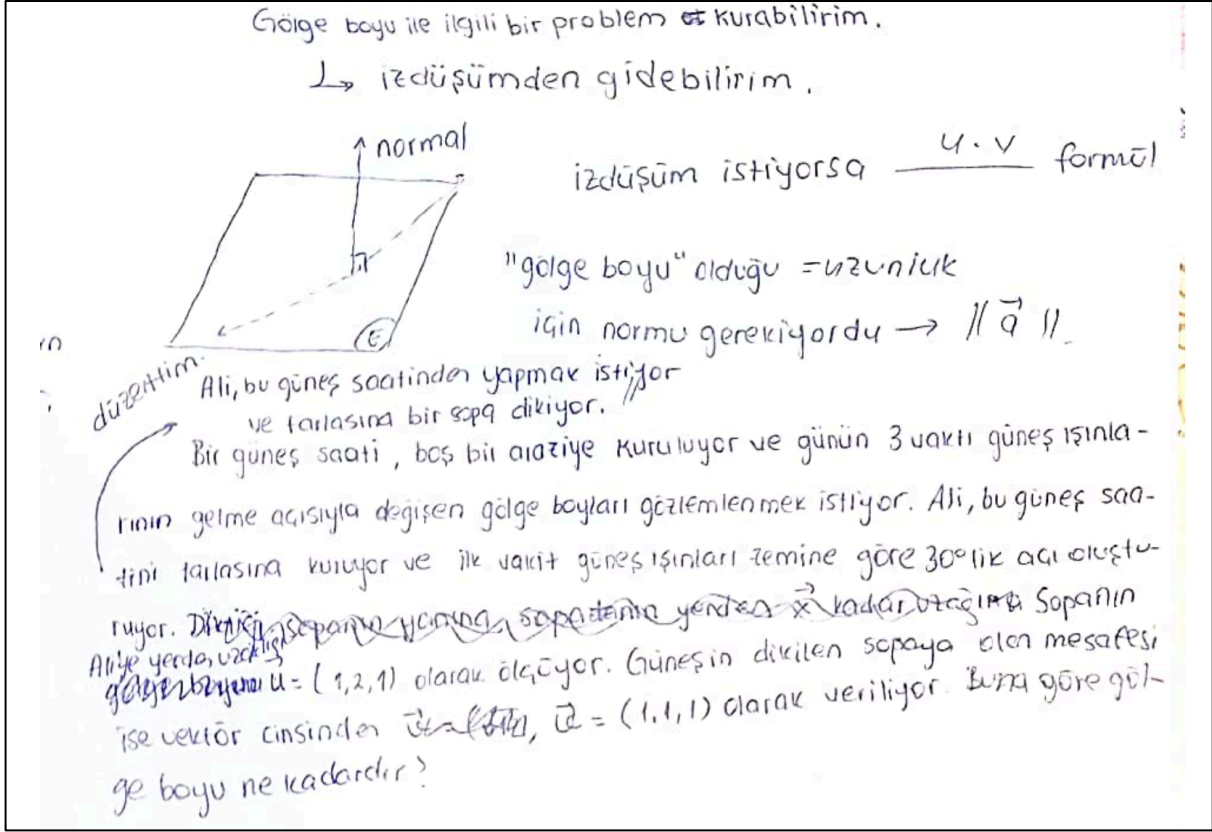 Gölge boyu ile ilgili bir problem kurabilirim.
↳ izdüşümden gidebilirim.
normal
izdüşüm istiyorsa u.v formül
"gölge boyu" olduğu = uzunluk
için normu gerekiyordu → ||a⃗||
E
düzelttim.
Ali, bu güneş saatinden yapmak istiyor
ve tarlasına bir sopa dikiyor.
Bir güneş saati, boş bir araziye kuruluyor ve günün 3 vakti güneş ışınla-
rının gelme açısıyla değişen gölge boyları gözlemlenmek istiyor. Ali, bu güneş saa-
tini tarlasına kuruyor ve ilk vakit güneş ışınları zemine göre 30°lik açı oluştu-
ruyor. Sopanın
Ali'ye yerden uzaklığı
u = (1,2,1) olarak ölçüyor. Güneşin dikilen sopaya olan mesafesi
ise vektör cinsinden = (1,1,1) olarak veriliyor. Buna göre göl-
ge boyu ne kadardır?